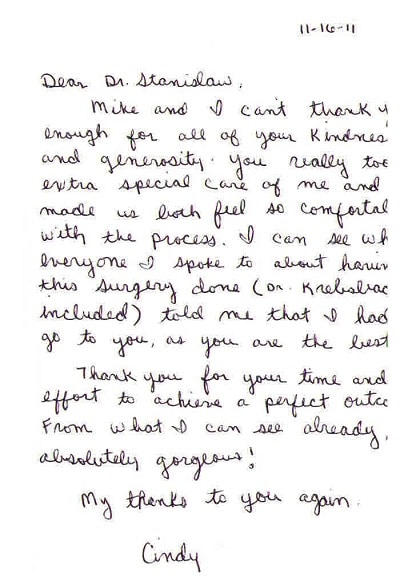 11-16-11
Dear Dr. Stanislaw,
Mike and I can't thank y
enough for all of your kindnes
and generosity. You really too
extra special care of me and
made us both feel so comfortal
with the process. I can see wh
everyone I spoke to about havin
this surgery done (Dr. Krebsbac
included) told me that I had
go to you, as you are the best
Thank you for your time and
effort to achieve a perfect outco
From what I can see already,
absolutely gorgeous!
My thanks to you again.
Cindy